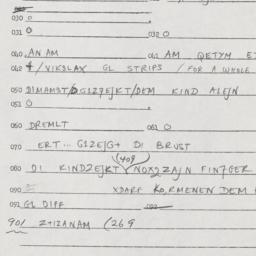 030 0
031 0 032 0
040 ANAM 041 AM QETYM E
042 4/VIKSLAX GL STRIPS / FOR A WHOLE
050 DIMAMST/ /DEM KIND
051 0
060 DREMLT 061 0
070 ERT... G1ZEJG+ DI BRUST
(409)
080 DI KINDZEJKT NOX2ZAJN FIN7GER
090 XDARF KO,RMENEN DEM
092 GL DIFF
901 Z+IZANAM (269